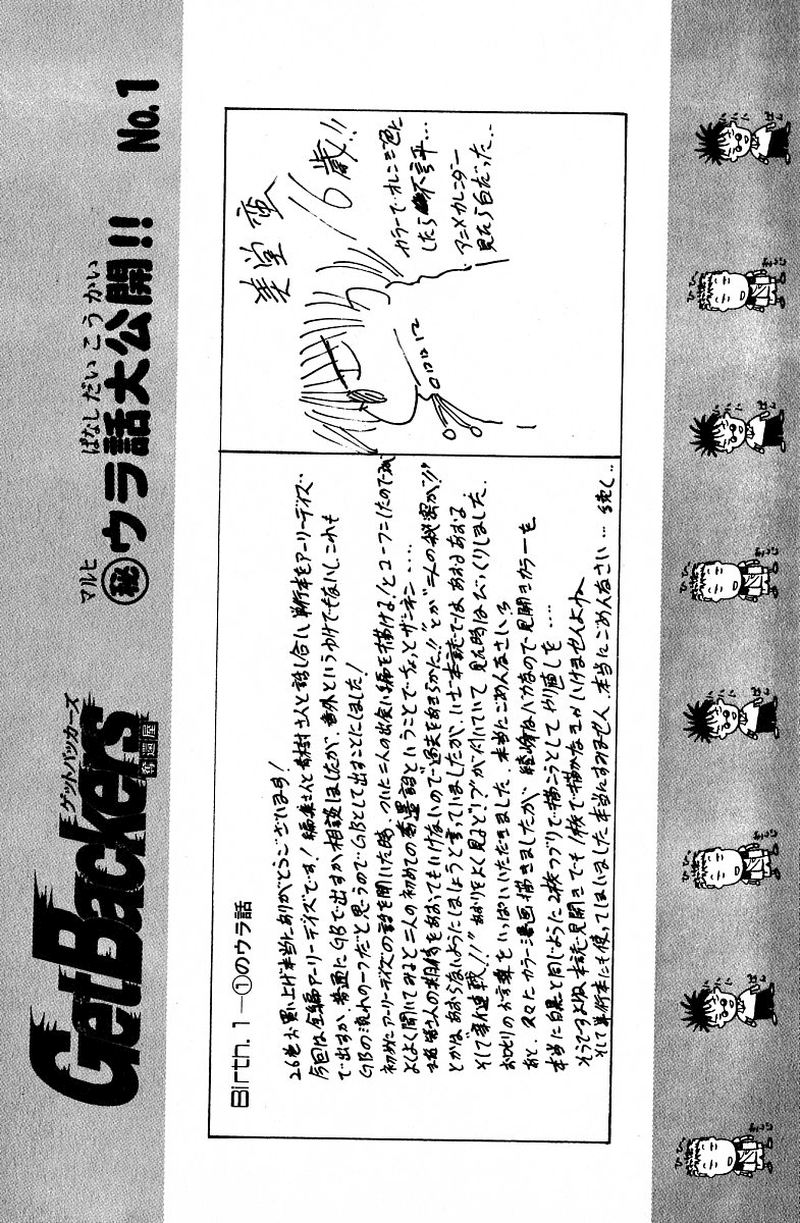 ゲットバッカーズ
GetBackers
奪還屋
マルヒ ばなしだいこうかい
㊙ウラ話大公開!! No.1
Birth.1―①のウラ話
26巻お買い上げ本当にありがとうございます!
今回は全編アーリーデイズです!編集さんと青樹さんと話し合い、単行本をアーリーデイズ
で出すか、普通にGBで出すか相談しましたが、番外というわけでもないし、これも
GBの流れの一つだと思うのでGBとして出すことにしました!
初めにアーリーデイズの話を聞いた時、ついに二人の出会い編を描ける!とコーフンしたのですが
よくよく聞いてみると二人の初めての奪還話ということでちょっとザンネン…
読者さんの期待をあおってもいけないので“過去をあきらかに!!”とか“二人の秘密が!!”
とかはあおらないようにしましょうと言っていましたが、いざ本誌ではあおるあおる
そして第1連載!!“あおりをよく見ると!?”が付いていて見た時はびっくりしました。
お叱りのお手紙をいっぱいいただきました。本当にごめんなさい
あと、久々にカラー漫画描きましたが、綾峰はバカなので見開きカラーを
本当に白黒と同じように2枚つづりで描こうとしてやり直しを…
そうですよね 本誌で見開きでも1枚で描かなきゃいけませんよね
そして単行本にも使ってしまいました 本当にすみません、本当にごめんなさい… 続く…
美堂 蛮
16歳!!
カラーで、オレンジ色に
したら不評…
アニメカレンダー
見たら白だった…